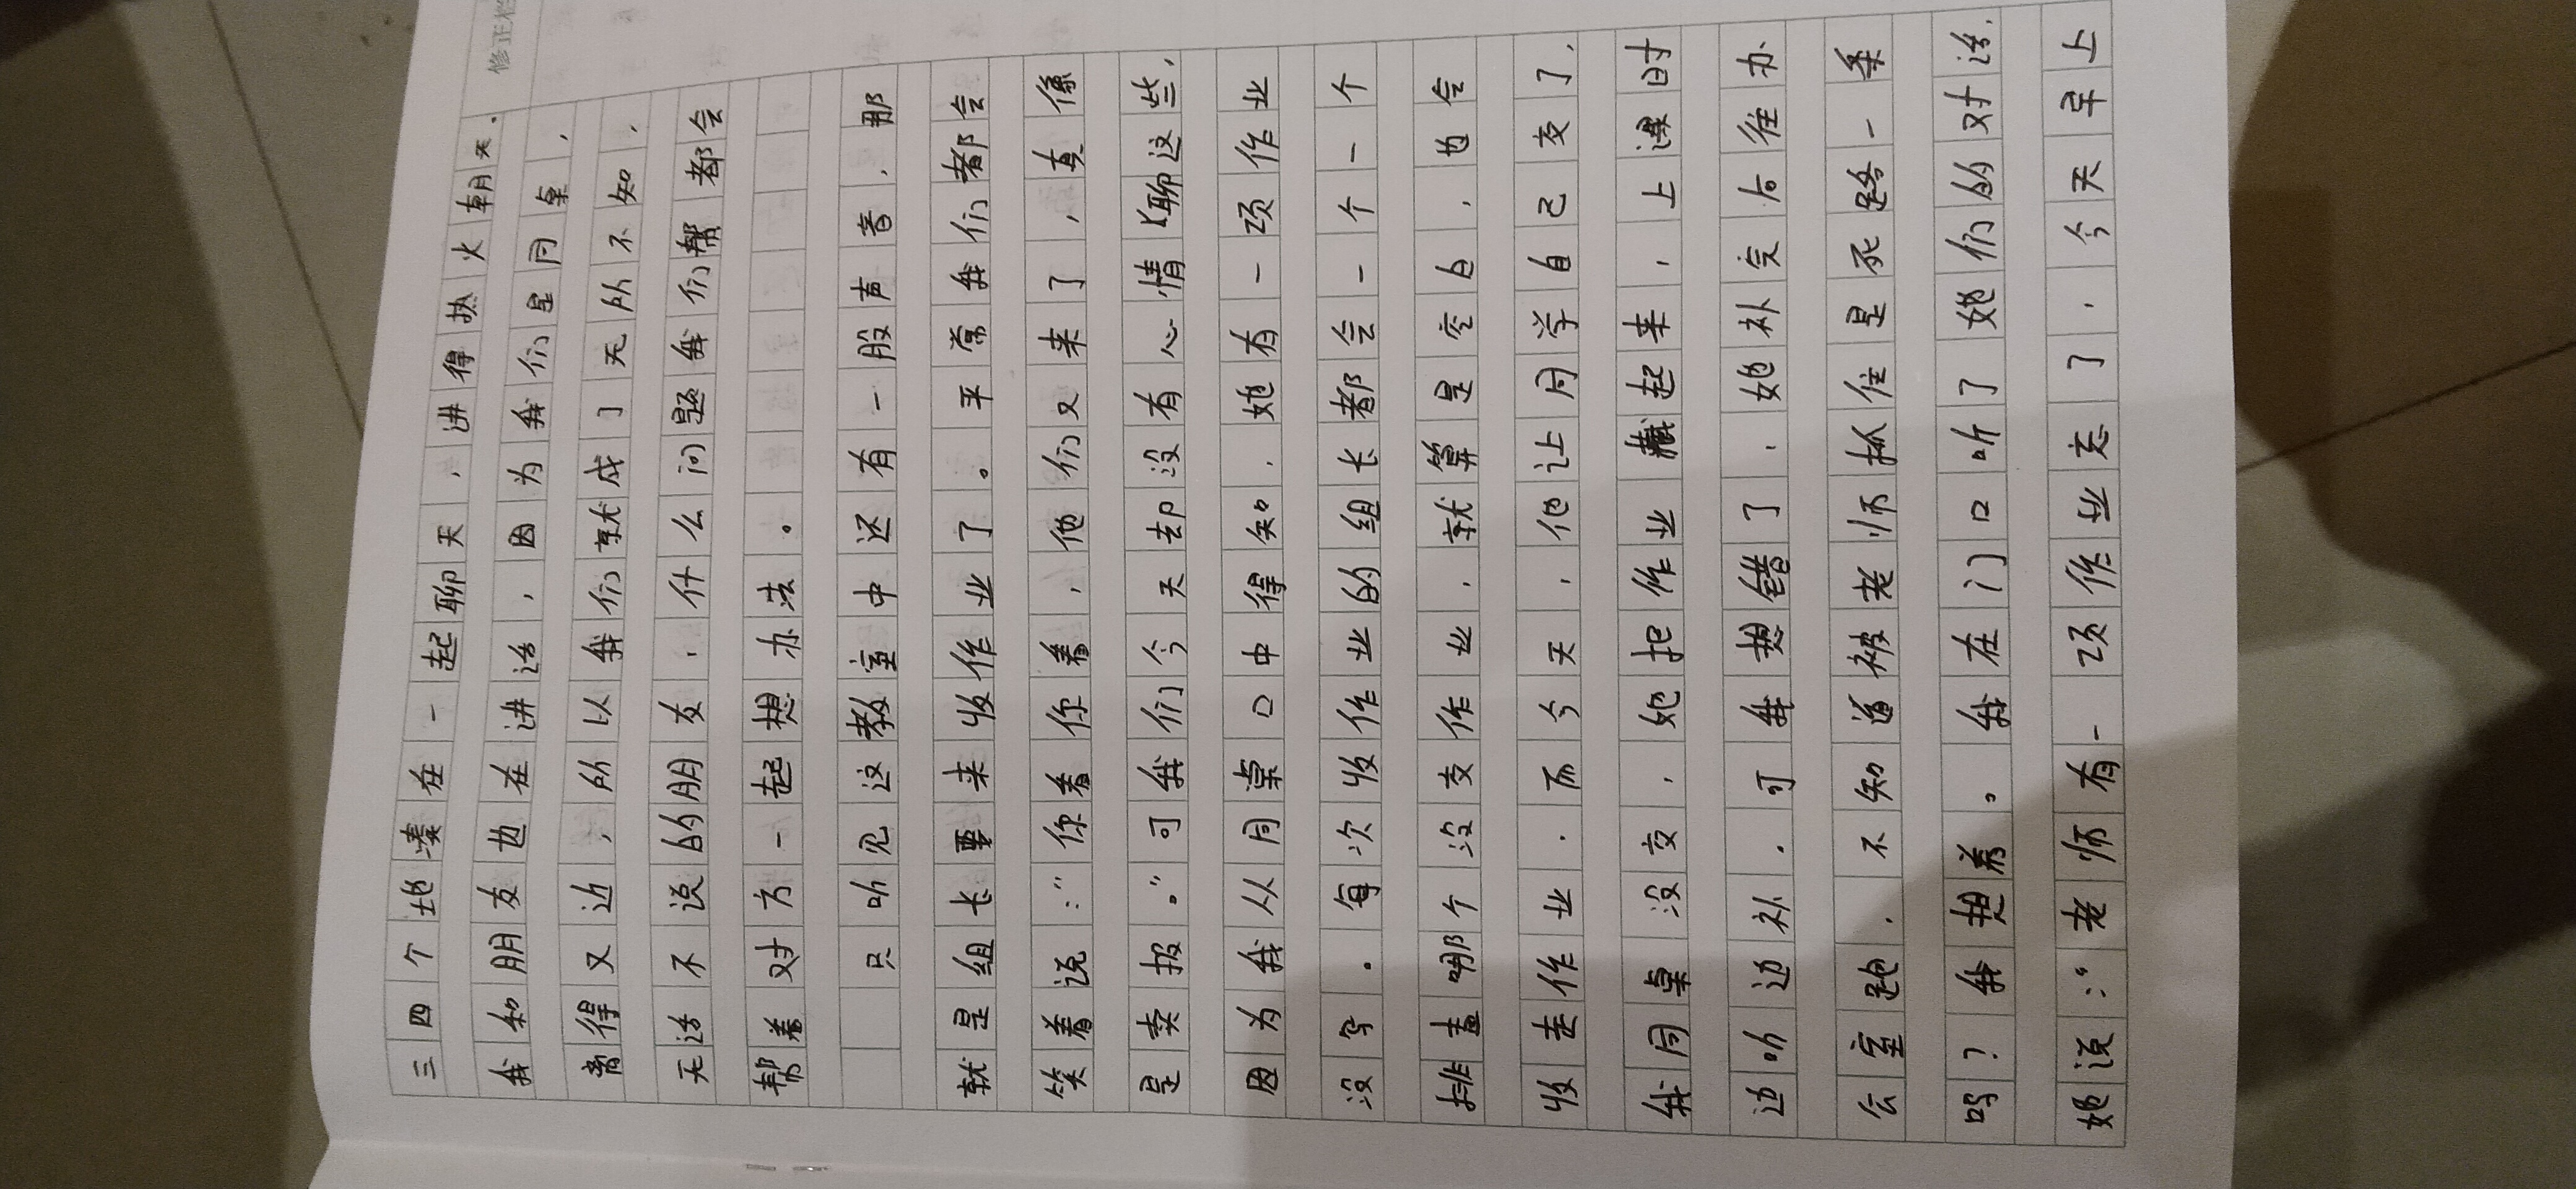 修正栏
三四个地凑在一起聊天，讲得热火朝天.
我和朋友也在讲话，因为我们是同桌，
离得又近，所以我们就成了无所不知，
无话不说的朋友，什么问题我们帮都会
帮着对方一起想办法。
只听见这教室中还有一股声音，那
就是组长要来收作业了。平常我们都会
笑着说：“你看你着，他们又来了，真像
是卖报。”可我们今天却没有心情聊这些，
因为我从同桌口中得知，她有一项作业
没写。每次收作业的组长都会一个一个
排查哪个没交作业，就算是空白，也会
收走作业.而今天，他让同学自己交了，
我同桌没交，她把作业藏起来，上课时
边听边补.可我想错了，她补完后往办
公室跑，不知道被老师抓住是死路一条
吗？我想着。我在门口听了她们的对话，
她说：“老师有一项作业忘了，今天早上